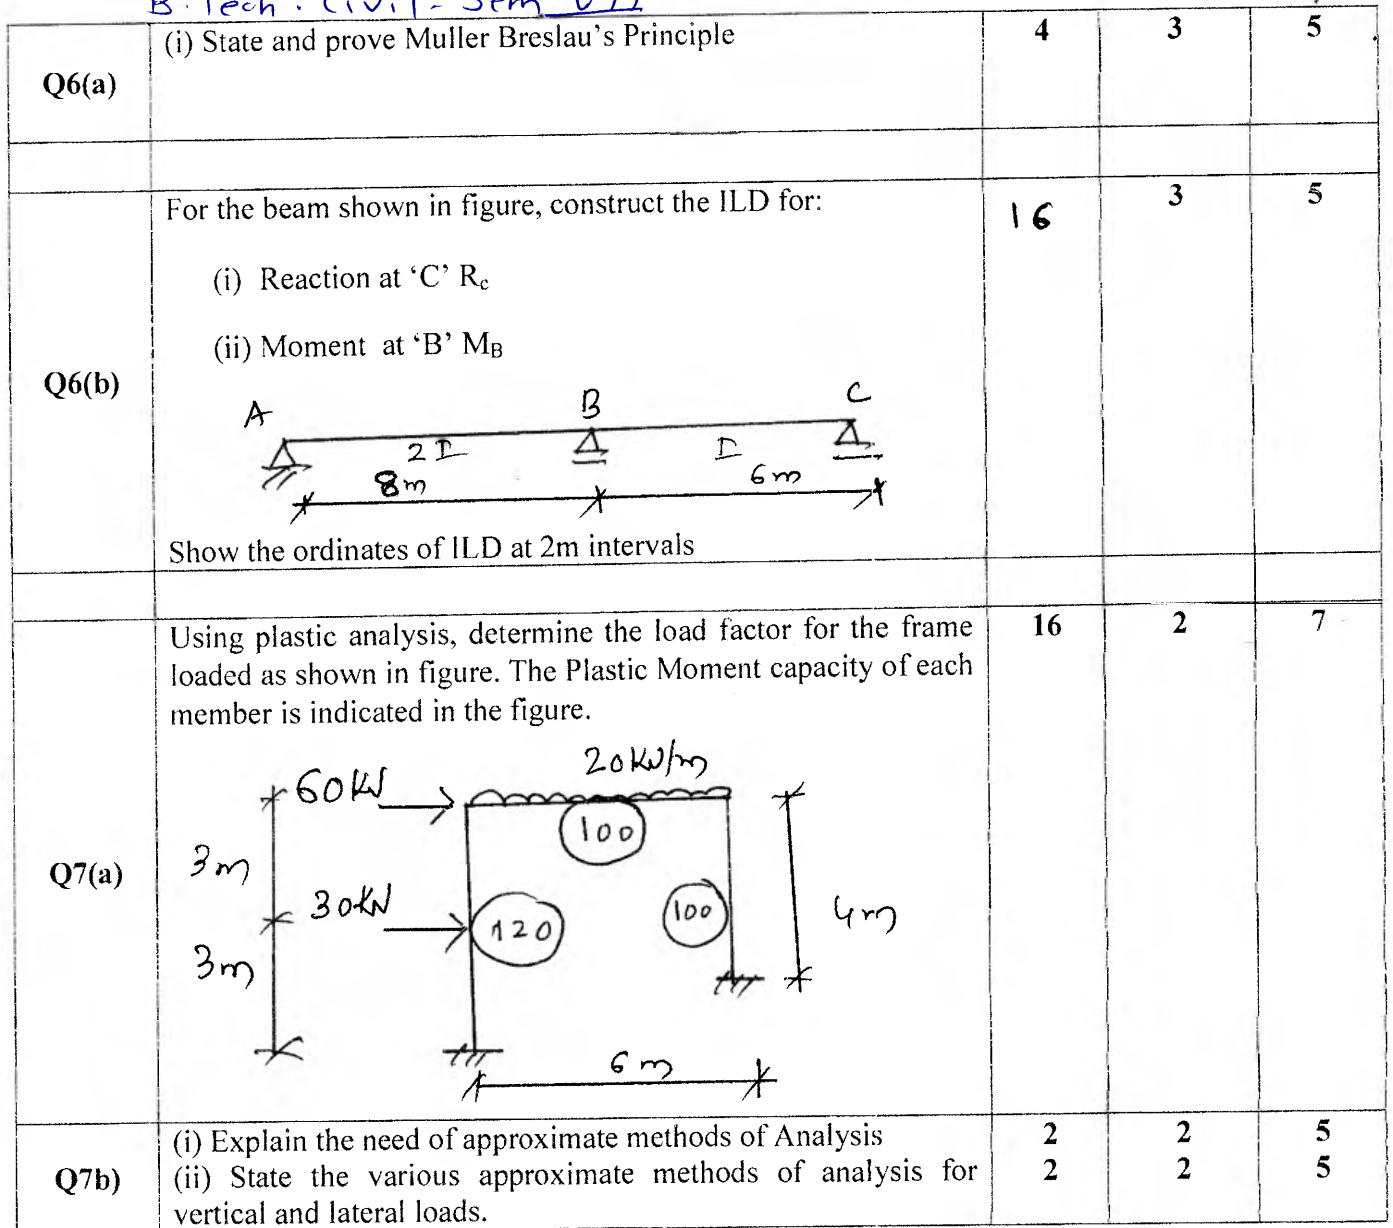 B. Tech. Civil - Sem VII
Q6(a)
(i) State and prove Muller Breslau's Principle
4 3 5
Q6(b)
For the beam shown in figure, construct the ILD for:
16 3 5
(i) Reaction at 'C' Rc
(ii) Moment at 'B' MB
A B C
2I I
8m 6m
Show the ordinates of ILD at 2m intervals
Q7(a)
Using plastic analysis, determine the load factor for the frame
16 2 7
loaded as shown in figure. The Plastic Moment capacity of each
member is indicated in the figure.
20kN/m
60kN
100
3m
30kN
120
100
4m
3m
6m
Q7b)
(i) Explain the need of approximate methods of Analysis
2 2 5
(ii) State the various approximate methods of analysis for
2 2 5
vertical and lateral loads.